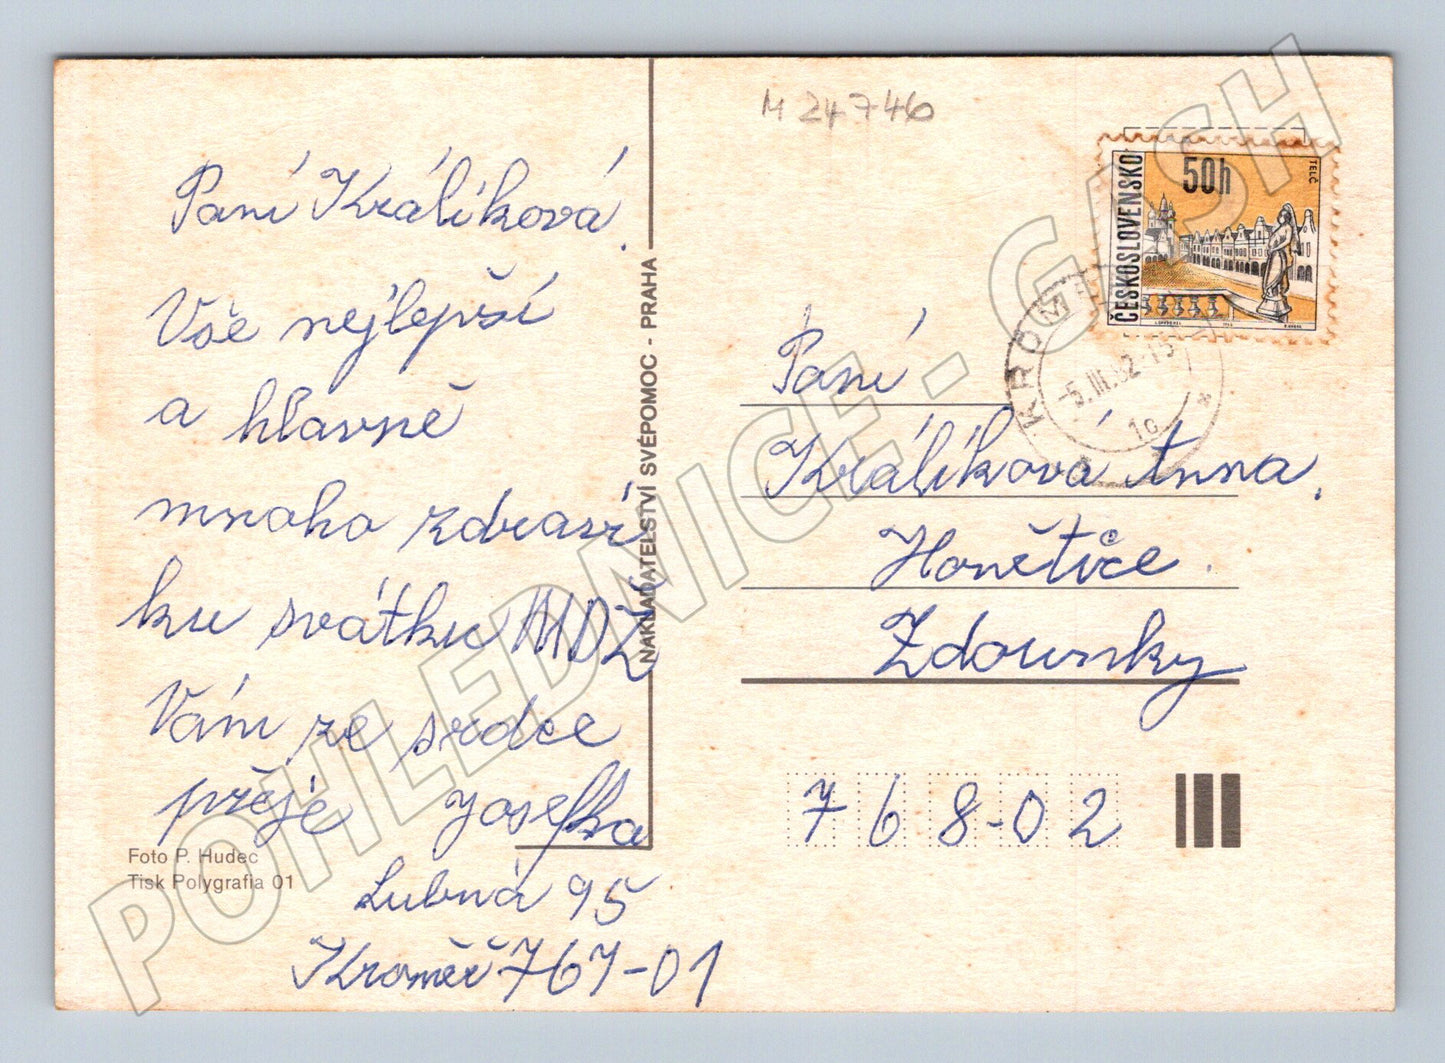 M 24746
Paní Králíková.
Vše nejlepší
a hlavně
mnoho zdraví
ku svátku MDŽ
Vám ze srdce
přeje Josefka
Lubná 95
Kroměř 767-01
Foto P. Hudec
Tisk Polygrafia 01
NAKLADATELSTVÍ SVÉPOMOC - PRAHA
ČESKOSLOVENSKO
50h
TELČ
KROMĚ
-5.III.82-15
1c
Paní
Králíková Anna.
Honětice.
Zdounky
768-02
POHLEDNICE - GASH